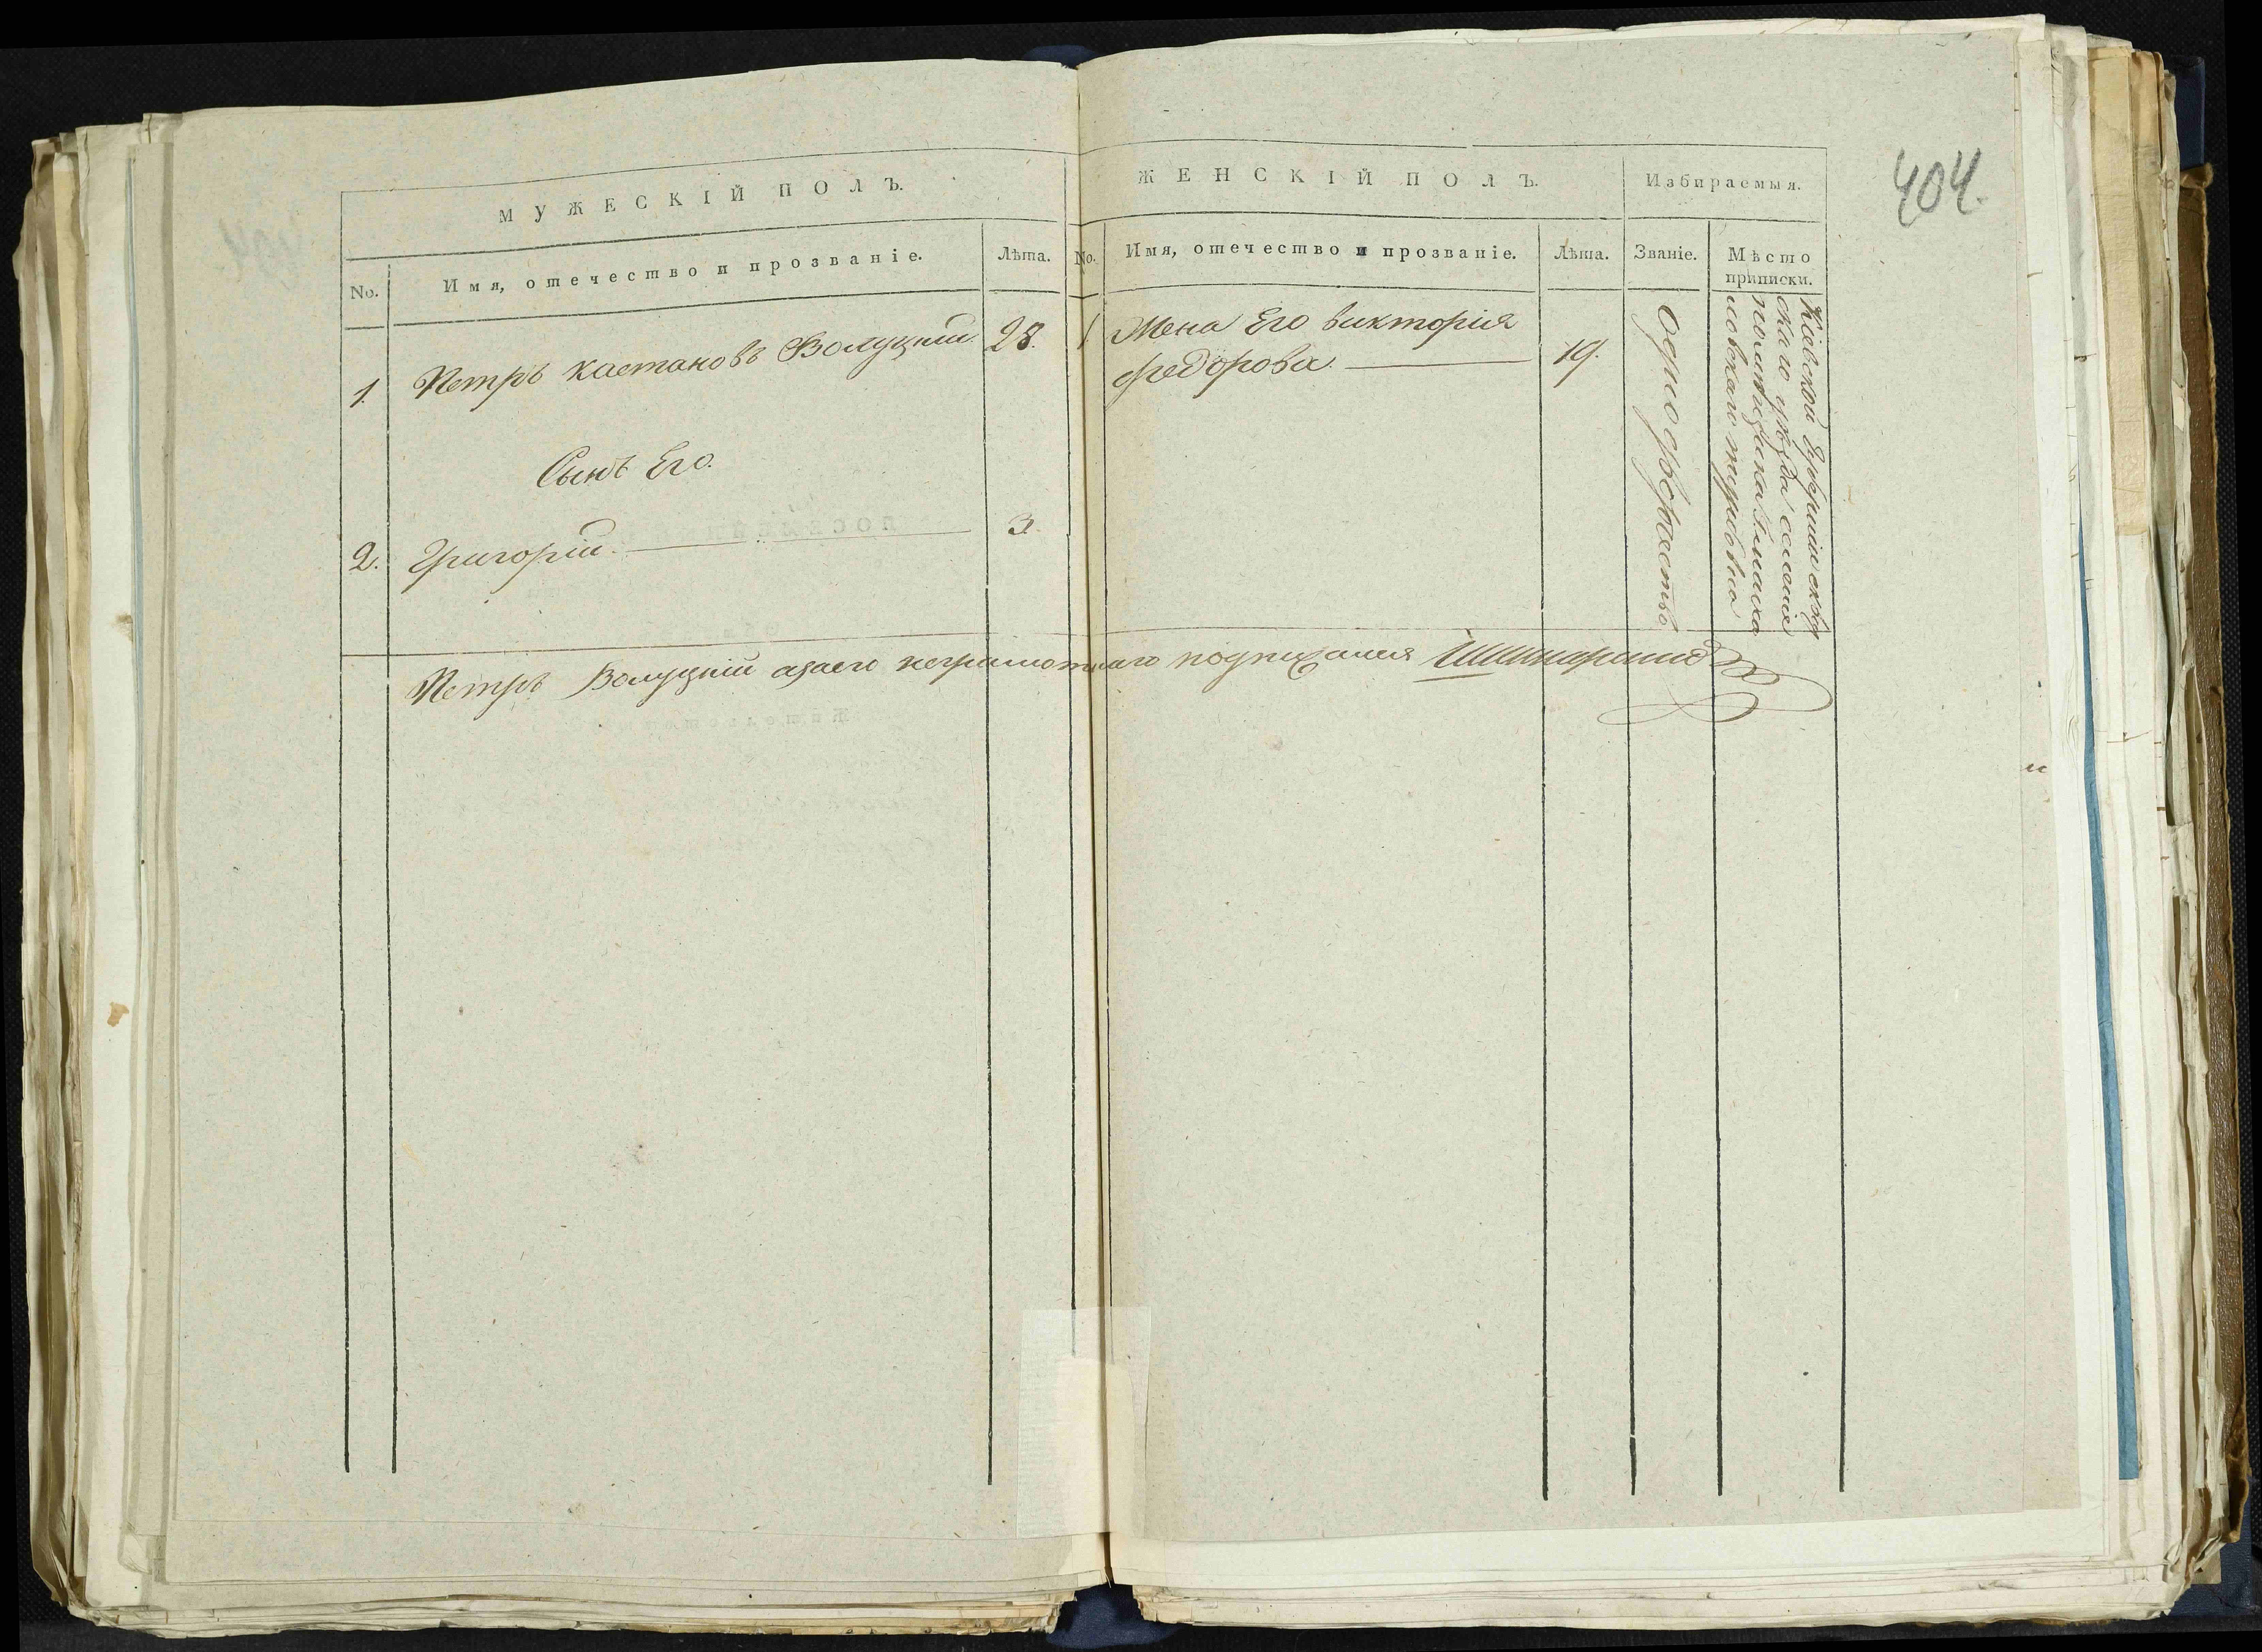 404.
МУЖЕСКІЙ ПОЛЪ.
No.
Имя, отечество и прозваніе.
Лѣта.
1. Петръ Каетановъ Волуцкій 28.
Сынъ Его.
2. Григорій. 3.
ЖЕНСКІЙ ПОЛЪ.
Избираемыя.
No.
Имя, отечество и прозваніе.
Лѣта.
Званіе.
Мѣсто
приписки.
1 Жена Его Викторія
Федорова. 19.
Однодворчество
Кіевской Губерніи
скаго уѣзда селенія
помѣщика
Петръ Волуцкій азаего неграмотнаго подписался